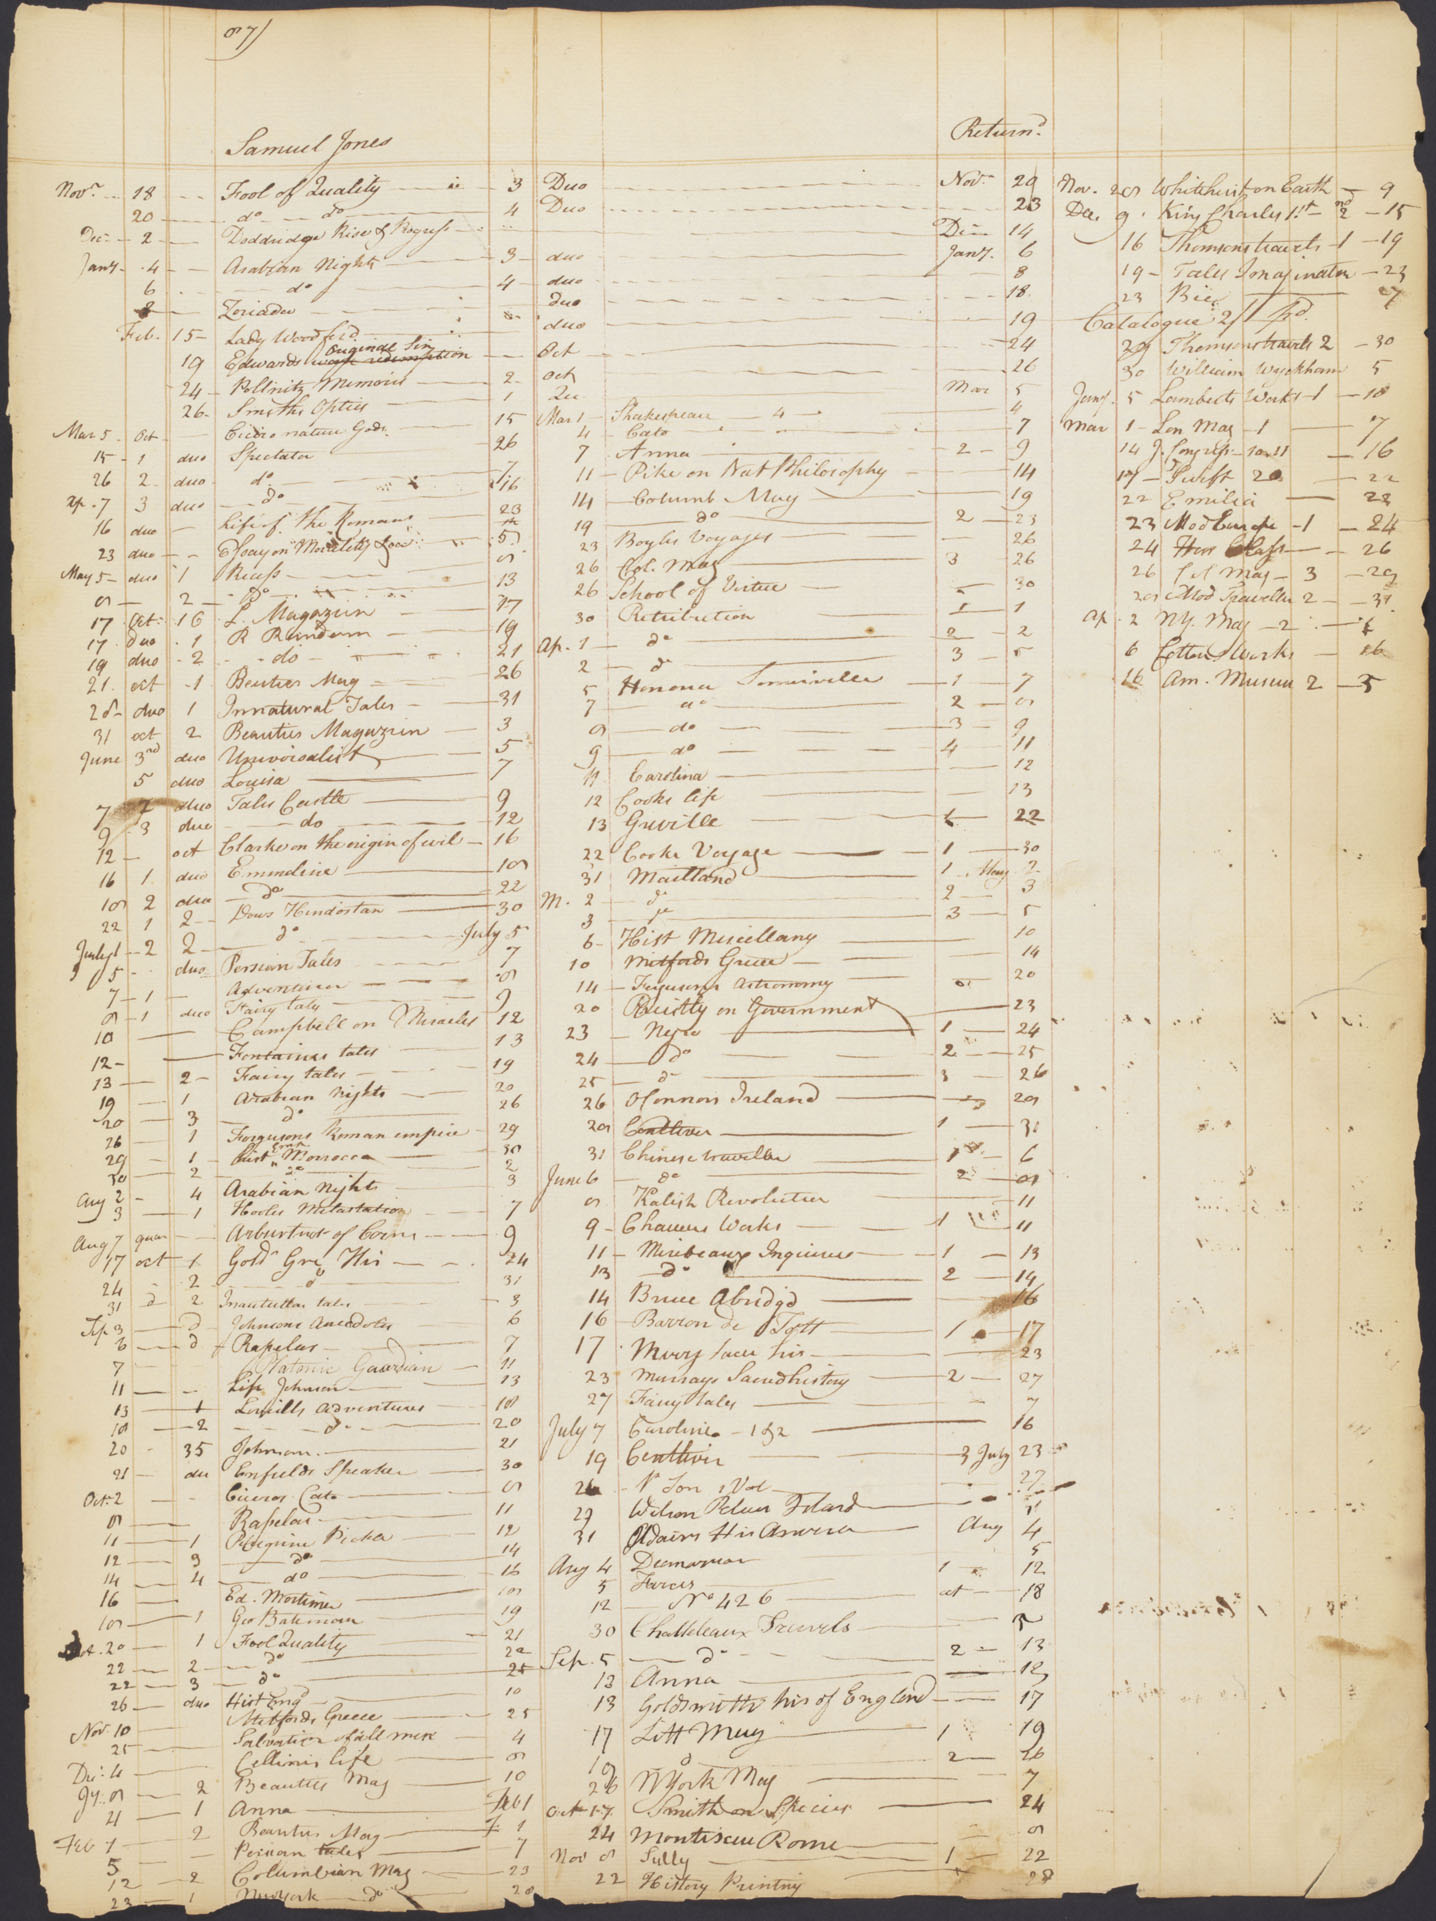 87)
Samuel Jones
Return.d
Nov.r 18 Fool of Quality 3 Duo Nov.r 20
20 do do 4 Duo 23
Dec. 2 Doddridge Rise & Progress Dec 14
Jany. 4 Arabian Nights 3 duo Jany. 6
6 do 4 duo 8
8 Zoriada duo 18
Feb. 15 Lady Woodford duo 19
19 Edwards Original Sin Oct 24
24 Pollnitz Memoirs 2 Oct 26
26 Smiths Optics 1 Mar 5
Mar 5 Oct Cicero nature Gods 15
15 1 duo Spectator 26
26 2 duo do
Ap. 7 3 duo do 16
16 duo Life of the Romans 23
23 duo Essay on Morality
May 5 duo 1 Recess 8
8 2 do 13
17 Oct. 16 L. Magazin 17
17 duo 1 R Random 19
19 duo 2 do 21
21 oct 1 Beauties Mag 26
28 duo 1 Innatural Tales 31
31 oct 2 Beauties Magazin 3
June 3nd duo Universalist 5
5 duo Louisa 7
7 2 duo Tales Castle 9
9 3 duo do 12
12 oct Clarke on the origin of evil 16
16 1 duo Emmeline 18
18 2 duo do 22
22 1 2 Dows Hindostan 30
July 1 2 2 do July 5
5 duo Persian Tales 7
7 1 Adventurer 8
8 1 duo Fairy tales 9
10 Campbell on Miracles 12
12 Fontaines tales 13
13 2 Fairy tales 19
19 1 Arabian Nights 20
20 3 do 26
26 1 Fergusons Roman empire 29
29 1 Hist Morocco 30
30 2 do 2
Aug 2 4 Arabian Nights 3
3 1 Hooles Metastasio 7
Aug 7 quar Arbuthnot of Coins 9
17 oct 1 Gold.s Gre His 24
24 2 do 31
31 d 2 tales 3
Sep 3 d Johnsons Anecdotes 6
6 d Rapelas 7
7 Platonic Guardian 11
11 Life Johnson 13
13 1 Lovills Adventures 18
18 2 do 20
20 35 Johnson 21
21 du Enfields Speaker 30
Oct. 2 Ciceros Cato 8
8 Rapelas 11
11 1 Peregrine Pickle 12
12 3 do 14
14 4 do 16
16 Ed. Mortimer 18
18 1 Geo Bateman 19
Oct. 20 1 Fool Quality 21
22 2 do 22
22 3 do 25
26 duo Hist Eng.d 10
Nov. 10 Mitfords Greece 25
25 Salvation of all men 4
Dec. 4 Cellinis life 8
Jy. 8 2 Beauties Mag 10
21 1 Anna Feb 1
Feb 1 2 Beauties Mag 1
5 Persian tales 7
12 2 Columbian Mag 23
23 1 New York do 28
Mar 1 Shakespeare 4 4
4 Cato 7
7 Anna 2 9
11 Pike on Nat Philosophy 14
14 Columb Mag 19
19 do 2 23
23 Boyles Voyages 26
26 Col. Mag 3 26
26 School of Virtue 30
30 Retribution 1 1
Ap. 1 do 2 2
2 do 3 5
5 Honoria Somerville 1 7
7 do 2 8
8 do 3 9
9 do 4 11
11 Carolina 12
12 Cooks life 13
13 Greville 1 22
22 Cooks Voyage 1 30
31 Maitland 1 May 2
M. 2 do 2 3
3 do 3 5
6 Hist Miscellany 10
10 Mitfords Greece 14
14 Fergusons Astronomy 20
20 Priestly on Government 23
23 Negro 1 24
24 do 2 25
25 do 3 26
26 OConnors Ireland 28
28 Centlivre 1 31
31 Chinese traveller 1 6
June 6 do 2 8
8 Polish Revolution 11
9 Chaucers Works 1 11
11 Mirabeaux Inquiries 1 13
13 do 2 14
14 Bruce Abridg'd 16
16 Barron de Tott 1 17
17 his 23
23 Murrays Sacred history 2 27
27 Fairy tales 7
July 7 Caroline 1 & 2 16
19 Centlivre 3 July 23
26 1 Vol 27
29 Wilson Pelew Island 31
31 Adairs His America Aug 4
Aug 4 5
5 Farces 1 12
12 No 426 18
30 Chatteleaux Travels
Sep. 5 do 2 13
13 Anna
13 Goldsmiths his of England 17
17 Litt Mag 1 19
19 do 2 26
26 N York Mag 7
Oct 17 Smith on Species 24
24 Montiscue Rome 8
Nov 8 Sully 1 22
22 History Printing 28
Nov. 28 Whitehurst on Earth 9
Dec. 9 King Charles 1st 2nd 15
16 Thomsons travels 1 19
19 Tales Imagination 23
23 27
Catalogue 2/ pd.
29 Thomsons travels 2 30
30 William Wyckham 5
Jany. 5 Lamberts Works 1 18
Mar 1 Lon Mag 1 7
14 J. Congress 16
17 Swift 20 22
22 Emilia 23
23 Mod Europe 1 24
24 26
26 Col Mag 3 29
28 Mod Traveller 2 31
Ap. 2 NY. Mag 2 6
6 Cottons Works 16
16 Am. Museu 2 5